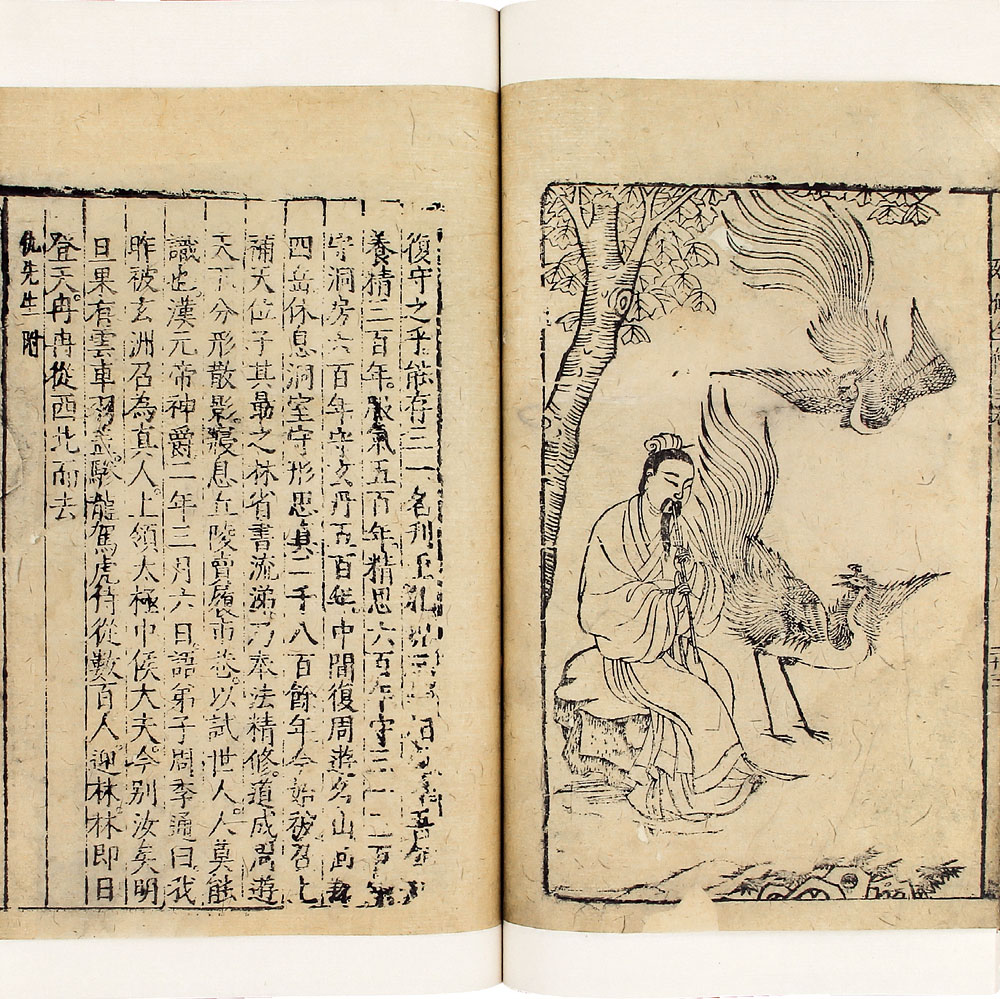 復守之乎能存三一名刊玉札
養精三百年。服氣五百年精思六百年守三一二百年
守洞房六百年守玄丹五百年中間復周遊名山回
四岳休息洞室守形思真二千八百餘年今始被召上
補天位子其勗之林省書流涕乃奉法精修。道成周遊
天下分形散影。寢息丘陵賣履市巷。以試世人。人莫能
識也。漢元帝神爵二年三月六日。語弟子周季通曰我
昨被玄洲召為真人。上領太極中候大夫。今别汝矣明
日果有雲車羽蓋。驂龍駕虎侍從數百人。迎林。林即日
登天。冉冉從西北而去
仇先生附